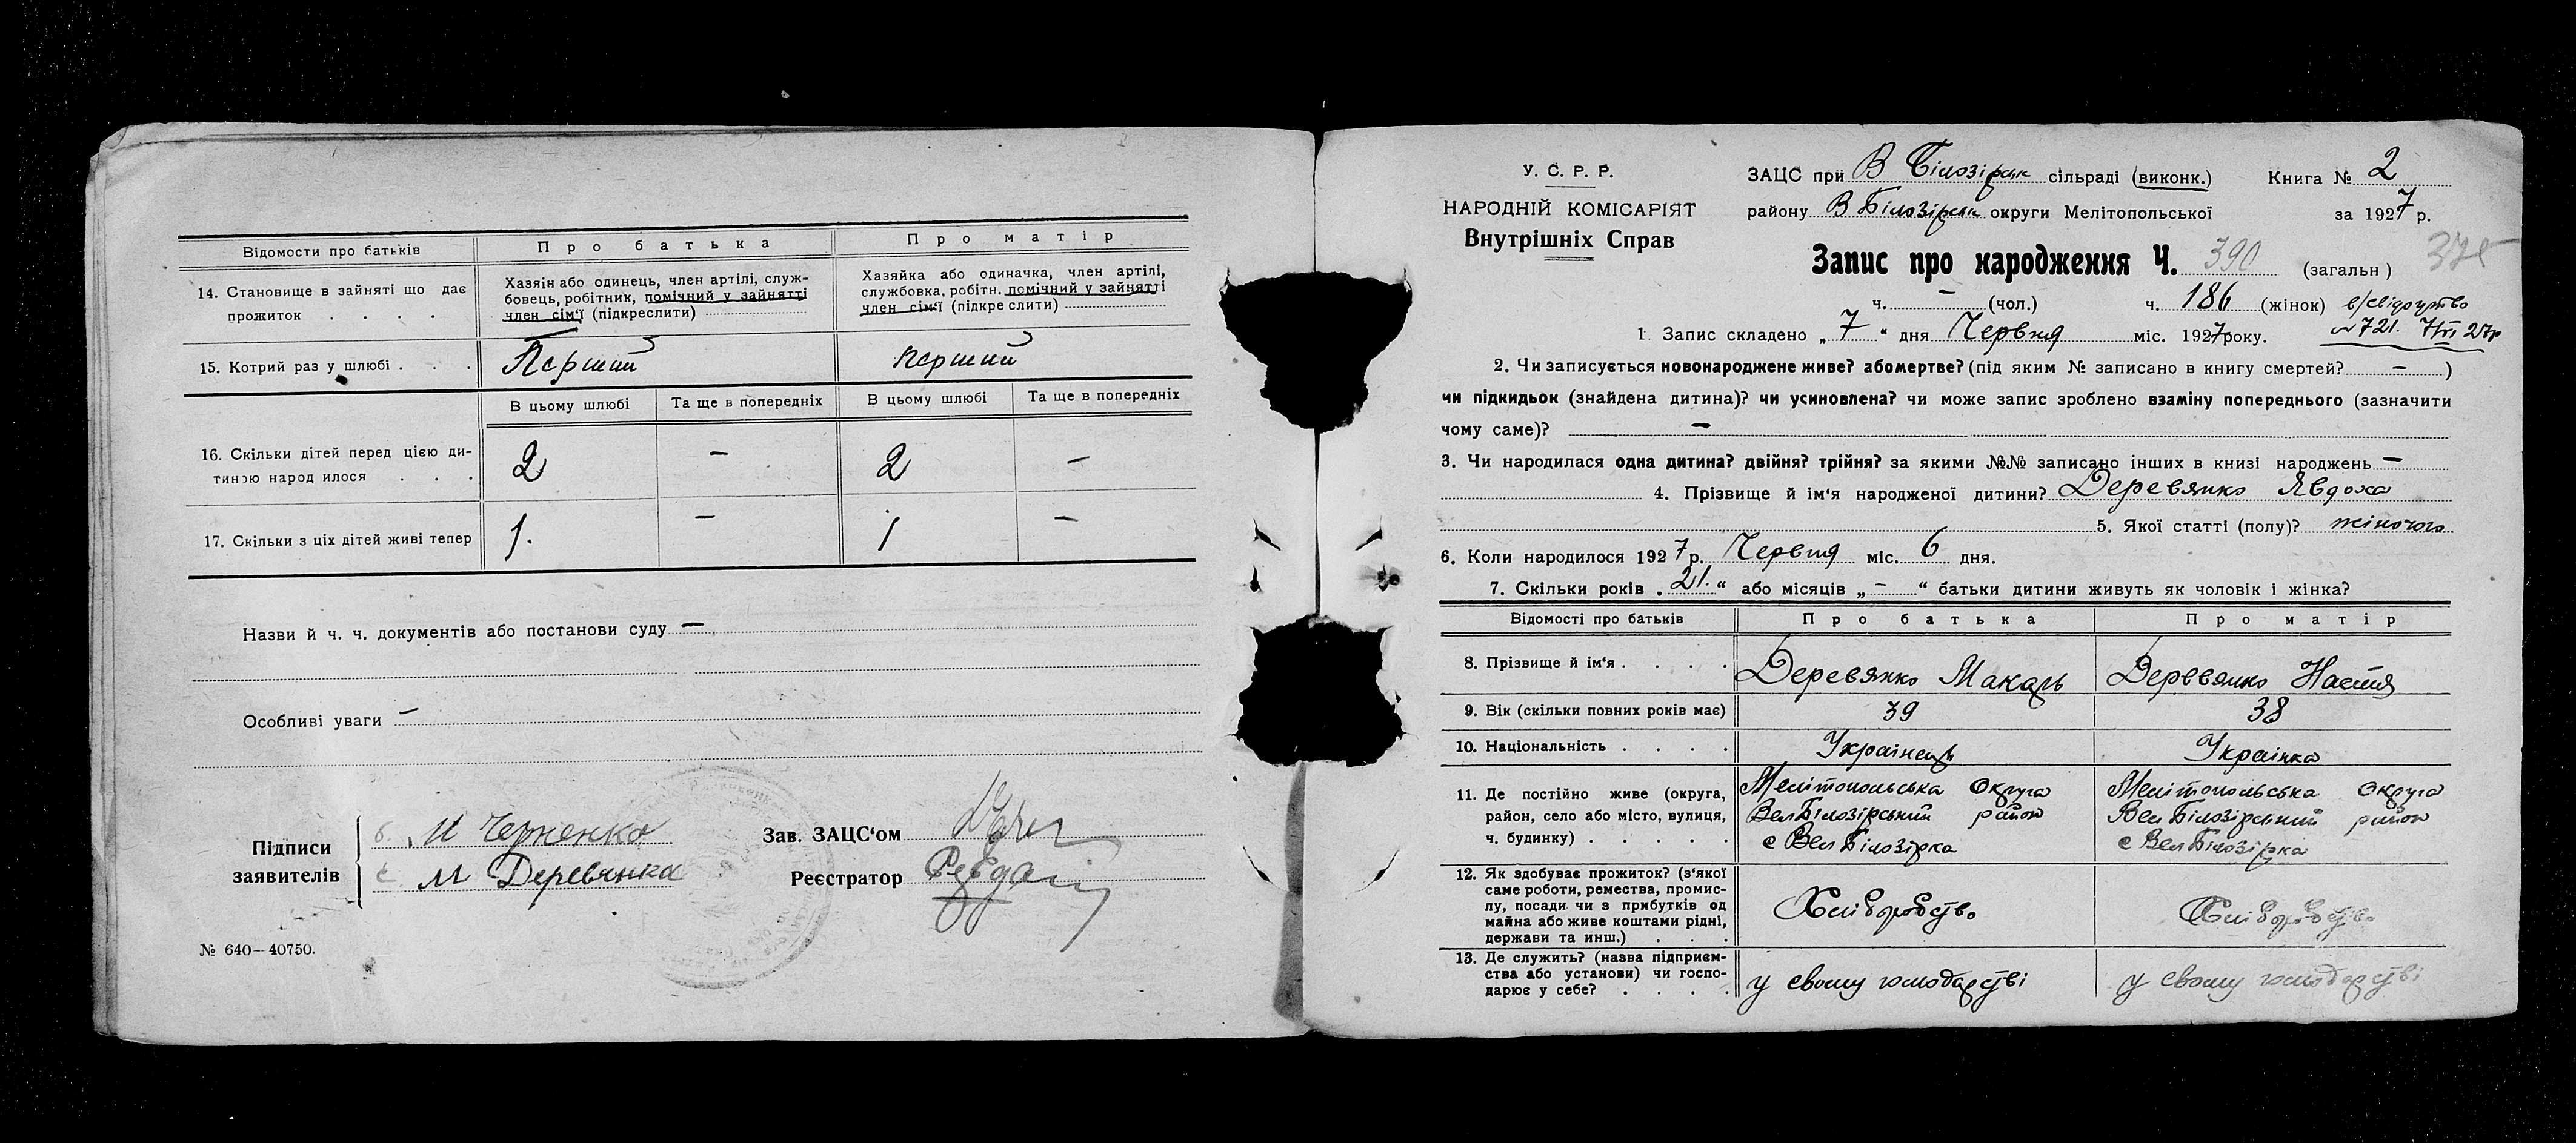 Відомости про батьків | Про батька | Про матір
14. Становище в зайняті що дає прожиток . . . . | Хазяін або одинець, член артілі, служ-бовець, робітник, помічний у зайнятті член сім'ї (підкреслити) | Хазяйка або одиначка, член артілі, службовка, робітн. помічний у зайнятті член сім'ї (підкреслити)
15. Котрий раз у шлюбі . . . | Перший | перший
В цьому шлюбі | Та ще в попередніх | В цьому шлюбі | Та ще в попередніх
16. Скільки дітей перед цією ди-
тиною народилося . . . | 2 | – | 2 | –
17. Скільки з ціх дітей живі тепер | 1. | – | 1 | –
Назви й ч. ч. документів або постанови суду –
Особливі уваги –
Підписи
заявителів
И Черненко
М Деревянка
Зав. ЗАЦС'ом
Реєстратор
№ 640–40750.
У. С. Р. Р.
НАРОДНІЙ КОМІСАРІЯТ
Внутрішніх Справ
ЗАЦС при В Білозірськ сільраді (виконк.) Книга № 2
району В Білозірськ округи Мелітопольської за 1927 р.
Запис про народження Ч. 390 (загальн)
ч. – (чол.) ч. 186 (жінок) в/свідоцтво
№721. 7/VI 27р
1. Запис складено „7“ дня Червня міс. 1927 року.
2. Чи записується новонароджене живе? або мертве? (під яким № записано в книгу смертей? – )
чи підкидьок (знайдена дитина)? чи усиновлена? чи може запис зроблено взаміну попереднього (зазначити
чому саме)? –
3. Чи народилася одна дитина? двійня? трійня? за якими №№ записано інших в книзі народжень –
4. Прізвище й ім'я народженої дитини? Деревянко Явдоха
5. Якої статті (полу)? жіночого
6. Коли народилося 1927 р. Червня міс. 6 дня.
7. Скільки років „21.“ або місяців „–“ батьки дитини живуть як чоловік і жінка?
Відомості про батьків | Про батька | Про матір
8. Прізвище й ім'я . . . . | Деревянко Макарь | Деревянко Настя
9. Вік (скільки повних років має) | 39 | 38
10. Національність . . . . | Українець | Українка
11. Де постійно живе (округа, | Мелітопольська Округа | Мелітопольська Округа
район, село або місто, вулиця, | Вел Білозірський район | Вел Білозірський район
ч. будинку) . . . . . | с Вел Білозірка | с Вел Білозірка
12. Як здобуває прожиток? (з'якої
саме роботи, ремества, промис-
лу, посади чи з прибутків од | Хліборобство | Хліборобство
майна або живе коштами рідні,
держави та инш.) . . .
13. Де служить? (назва підприєм-
ства або установи) чи госпо- | у своему господарстві | у своему господарстві
дарює у себе? . . . .